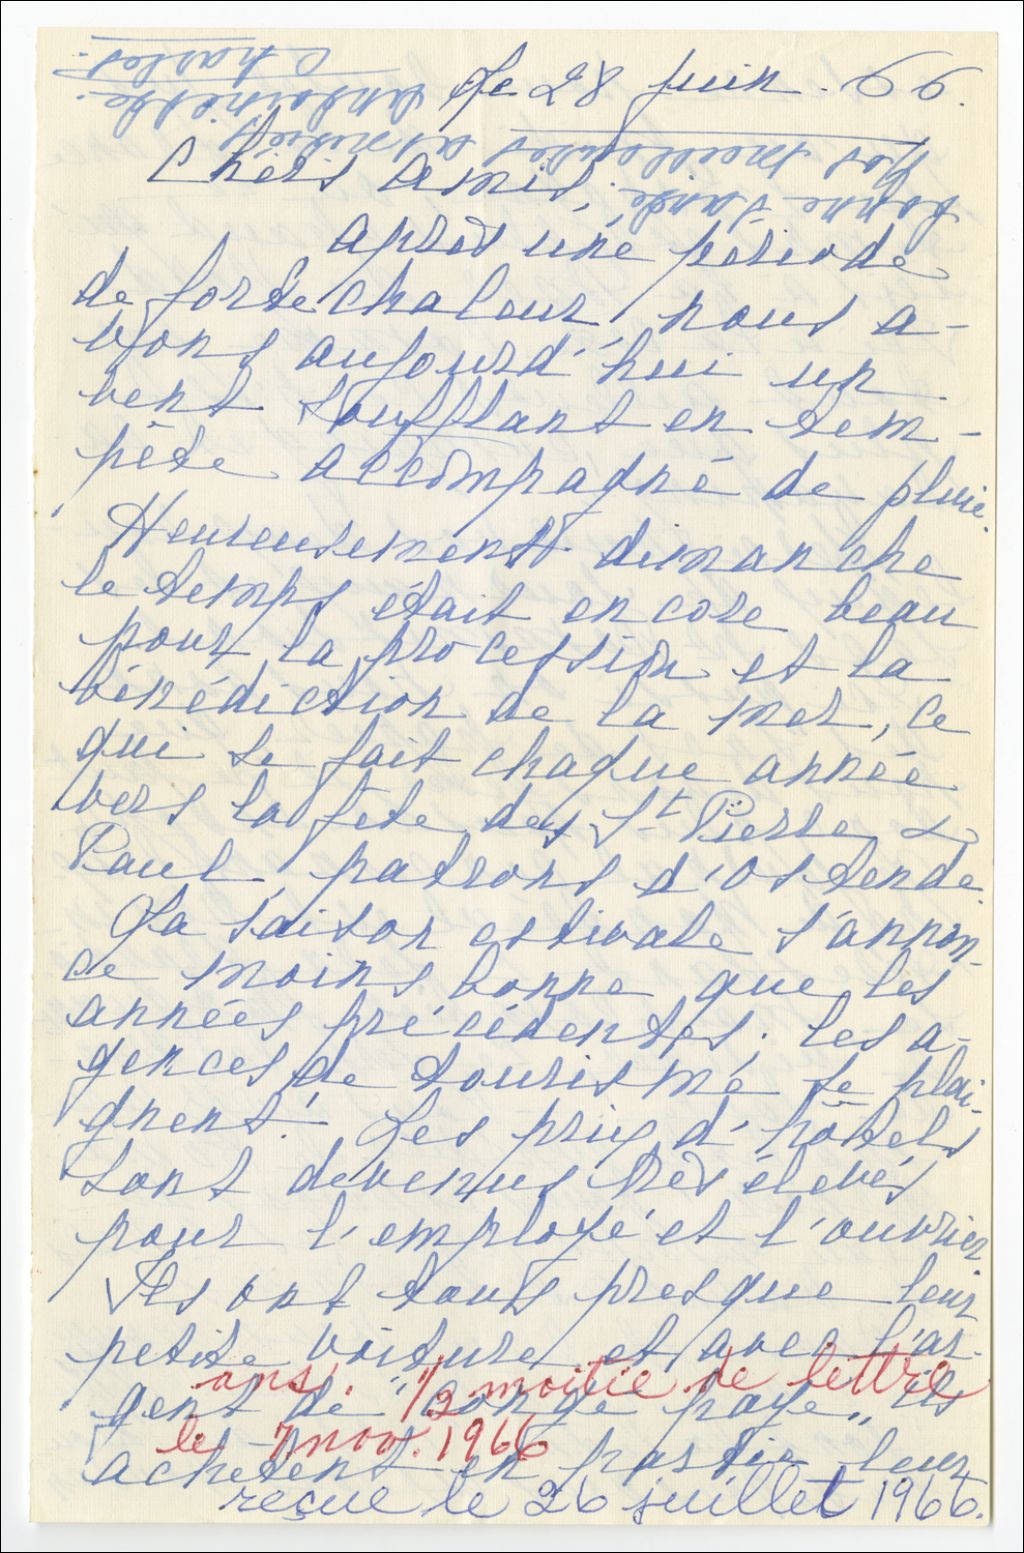 Le 28 juin. 66.
Chers Amis,
Après une période
de forte chaleur, nous a-
vons aujourd'hui un
vent soufflant en tem-
pête accompagné de pluie.
Heureusement dimanche
le temps était encore beau
pour la procession et la
bénédiction de la mer, ce
qui se fait chaque année
vers la fête des St Pierre &
Paul, patrons d'Ostende.
La saison estivale s'annon-
ce moins bonne que les
années précédentes. Les a-
gences de tourisme se plai-
gnent. Les prix d'hôtels
sont devenus très élevés
pour l'employé et l'ouvrier.
Ils ont tous presque leur
petite voiture et avec l'ar-
gent de "congé payé" ils
achètent en partie leur
bonne santé.
Nos meilleures amitiés
Antoinette.
Charles.
ans. 1/2 moitié de lettre
le 7 nov. 1966
reçue le 26 juillet 1966.